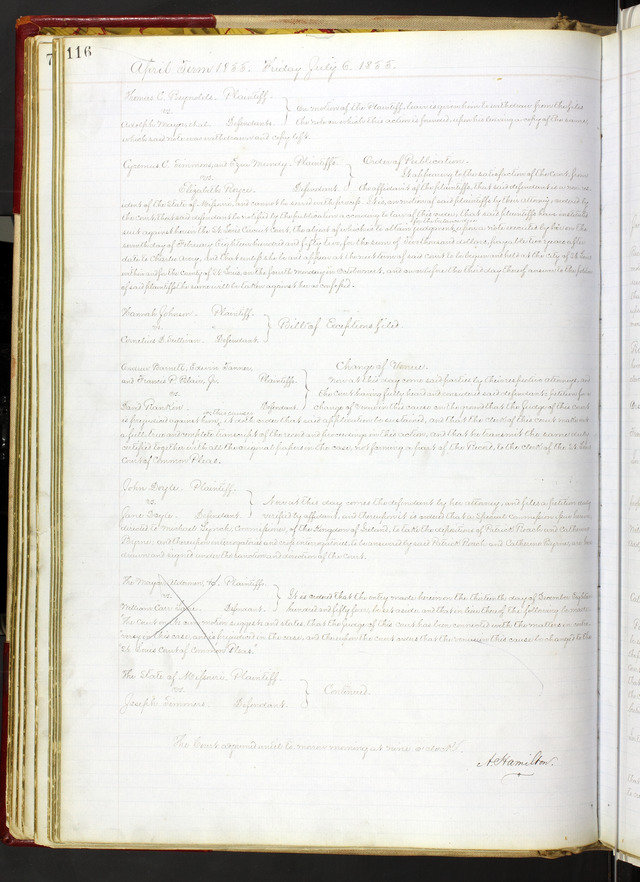 116
April Term 1855. Friday July 6, 1855.
Thomas C. Reynolds. Plaintiff.
vs.
Adolph Defendant.
On motion of the Plaintiff, leave is given him to withdraw from the files
the note on which this action is founded, upon his leaving a copy of the same,
which said note was withdrawn and copy left.
Cyrenius C. Simmons, and Plaintiffs
vs.
Elizabeth Defendant.
Order of Publication.
It appearing to the satisfaction of the Court, from
the affidavit of the plaintiffs, that said defendant is a non res-
ident of the State of Missouri, and cannot be served with process. It is, on motion of said plaintiffs by their attorney, ordered by
the court that said defendant be notified by the publication according to law of this order, that said plaintiffs have instituted
suit against her in the St. Louis Circuit Court, the object of which is to obtain judgment upon a note executed by her on the
seventh day of February Eighteen hundred and fifty for the sum of thousand dollars, payable two years after
date to Charles and that unless she be and appear at the next term of said court to be begun and held at the City of St Louis
within and for the county of St Louis, on the fourth Monday in October next, and on or before the third day thereof answer the petition
of said plaintiffs the same will be taken against her as confessed.
Hannah Johnson. Plaintiff.
vs.
Cornelius D. Sullivan. Defendant.
Bill of Exceptions filed.
Andrew Edwin
and Francis P. Blair, Jr. Plaintiffs.
vs.
David Rankin. Defendant.
Change of Venue.
Now at this day come said parties by their respective attorneys, and
the Court having fully heard and considered said defendant's petition for a
change of venue in this cause on the ground that the judge of this court
is prejudiced against him, it is ordered that said application be sustained, and that the clerk of this court make out
a full, true and complete transcript of the record and proceedings in this action, and that he transmit the same duly
certified together with all the original papers in the case, not forming a part of the record, to the clerk of the St Louis
Court of Common Pleas.
John Doyle. Plaintiff.
vs.
Jane Doyle. Defendant.
Now at this day comes the defendant by her attorney, and files a petition duly
verified by affidavit, and thereupon it is ordered that a special Commission
directed to Michael Lynch, Commissioner, of the Kingdom of Ireland, to take the deposition of Patrick and Catherine
and thereupon interrogatories and cross interrogatories, to be answered by said Patrick and Catherine
and signed under the sanction and direction of the court.
The Mayor, Aldermen, &c. Plaintiffs.
vs.
William Carr Defendant.
It is ordered that the entry made herein on the thirteenth day of December Eighteen
hundred and fifty four, be set aside, and that in lieu thereof the following be made:
"The Court on its own motion suggests and states, that the judge of this court has been connected with the matters in contro-
versy in this case, and is prejudiced in the case, and thereupon the court orders that the venue in this cause be changed to the
St. Louis Court of Common Pleas."
The State of Missouri. Plaintiff.
vs.
Joseph Defendant.
Continued.
The Court adjourned until to morrow morning at nine o'clock.
A. Hamilton.